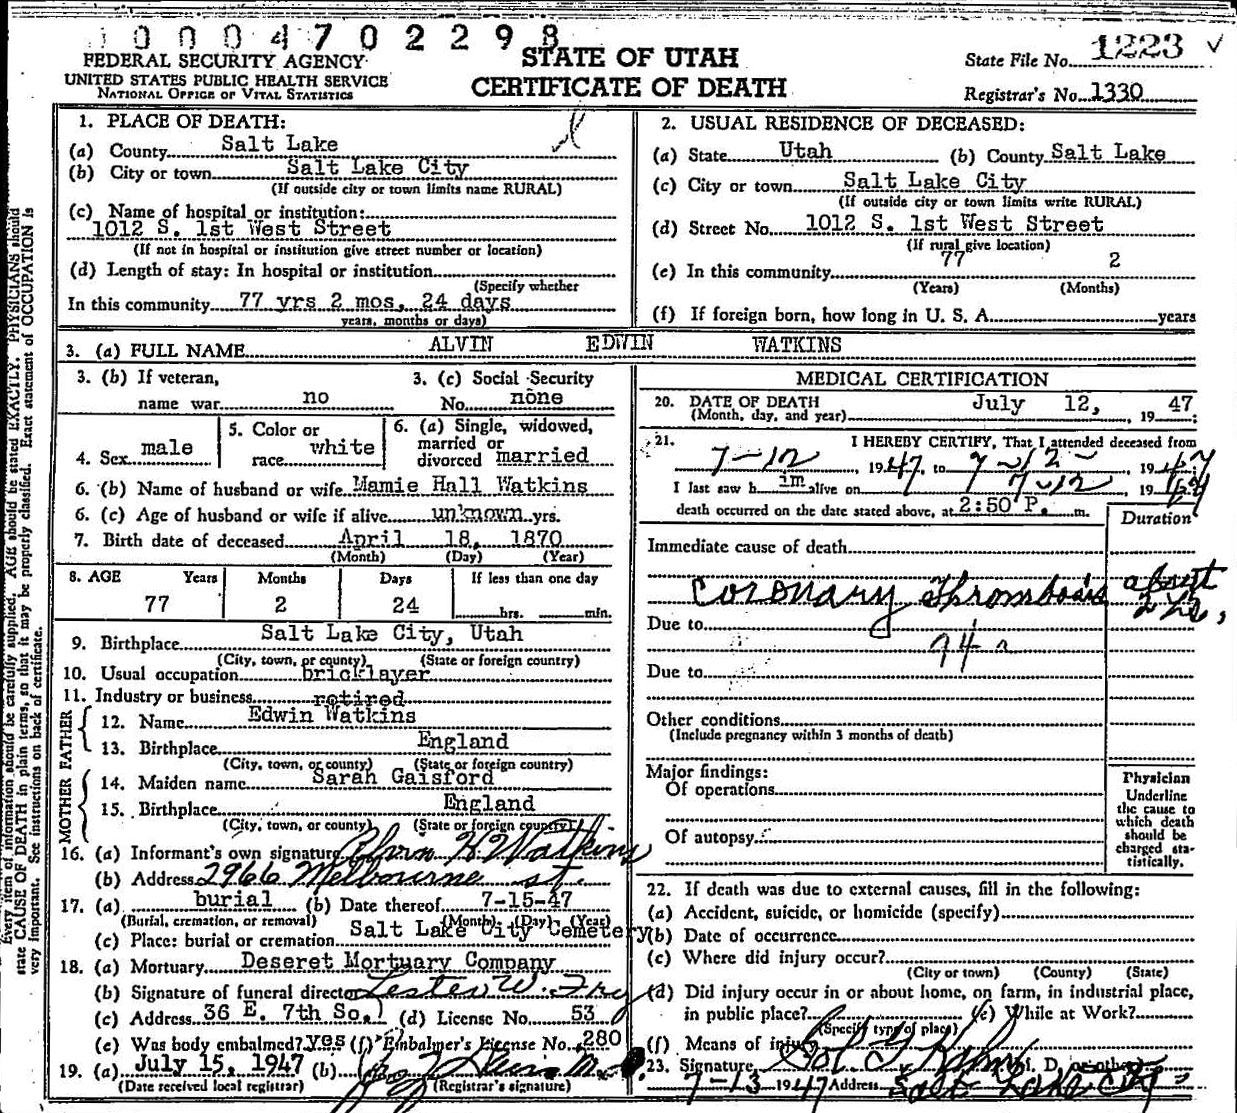 0004702298
FEDERAL SECURITY AGENCY
UNITED STATES PUBLIC HEALTH SERVICE
NATIONAL OFFICE OF VITAL STATISTICS
STATE OF UTAH
CERTIFICATE OF DEATH
State File No. 1223
Registrar's No. 1330
Every item of information should be carefully supplied. AGE should be stated EXACTLY. PHYSICIANS should
state CAUSE OF DEATH in plain terms, so that it may be properly classified. Exact statement of OCCUPATION is
very important. See instructions on back of certificate.
1. PLACE OF DEATH:
(a) County Salt Lake
(b) City or town Salt Lake City
(If outside city or town limits name RURAL)
(c) Name of hospital or institution:
1012 S. 1st West Street
(If not in hospital or institution give street number or location)
(d) Length of stay: In hospital or institution
(Specify whether
In this community 77 yrs 2 mos, 24 days
years, months or days)
2. USUAL RESIDENCE OF DECEASED:
(a) State Utah (b) County Salt Lake
(c) City or town Salt Lake City
(If outside city or town limits write RURAL)
(d) Street No. 1012 S. 1st West Street
(If rural give location)
(e) In this community 77 2
(Years) (Months)
(f) If foreign born, how long in U. S. A. years
3. (a) FULL NAME ALVIN EDWIN WATKINS
3. (b) If veteran, 3. (c) Social Security
name war no No. none
4. Sex male
5. Color or
race white
6. (a) Single, widowed,
married or
divorced married
6. (b) Name of husband or wife Mamie Hall Watkins
6. (c) Age of husband or wife if alive unknown yrs.
7. Birth date of deceased April 18, 1870
(Month) (Day) (Year)
8. AGE Years Months Days If less than one day
77 2 24 hrs. min.
9. Birthplace Salt Lake City, Utah
(City, town, or county) (State or foreign country)
10. Usual occupation bricklayer
11. Industry or business retired
FATHER
12. Name Edwin Watkins
13. Birthplace England
(City, town, or county) (State or foreign country)
MOTHER
14. Maiden name Sarah Gaisford
15. Birthplace England
(City, town, or county) (State or foreign country)
16. (a) Informant's own signature Watkins
(b) Address 2966 Melbourne st.
17. (a) burial (b) Date thereof 7-15-47
(Burial, cremation, or removal) (Month) (Day) (Year)
(c) Place: burial or cremation Salt Lake City Cemetery
18. (a) Mortuary Deseret Mortuary Company
(b) Signature of funeral director Lester W. Fry
(c) Address 36 E. 7th So. (d) License No. 53
(e) Was body embalmed? yes (f) Embalmer's License No. 280
19. (a) July 15, 1947 (b)
(Date received local registrar) (Registrar's signature)
MEDICAL CERTIFICATION
20. DATE OF DEATH
(Month, day, and year) July 12, 1947
21. I HEREBY CERTIFY, That I attended deceased from
7-12, 1947, to 7-12-, 1947
I last saw him alive on 7-12, 1947
death occurred on the date stated above, at 2:50 P. m.
Duration
Immediate cause of death
Coronary Thrombosis about
Due to
94a
Due to
Other conditions
(Include pregnancy within 3 months of death)
Major findings:
Of operations
Of autopsy
Physician
Underline
the cause to
which death
should be
charged sta-
tistically.
22. If death was due to external causes, fill in the following:
(a) Accident, suicide, or homicide (specify)
(b) Date of occurrence
(c) Where did injury occur?
(City or town) (County) (State)
(d) Did injury occur in or about home, on farm, in industrial place,
in public place? (e) While at Work?
(Specify type of place)
(f) Means of injury
23. Signature M. D. or other
7-13 1947 Address Salt Lake City